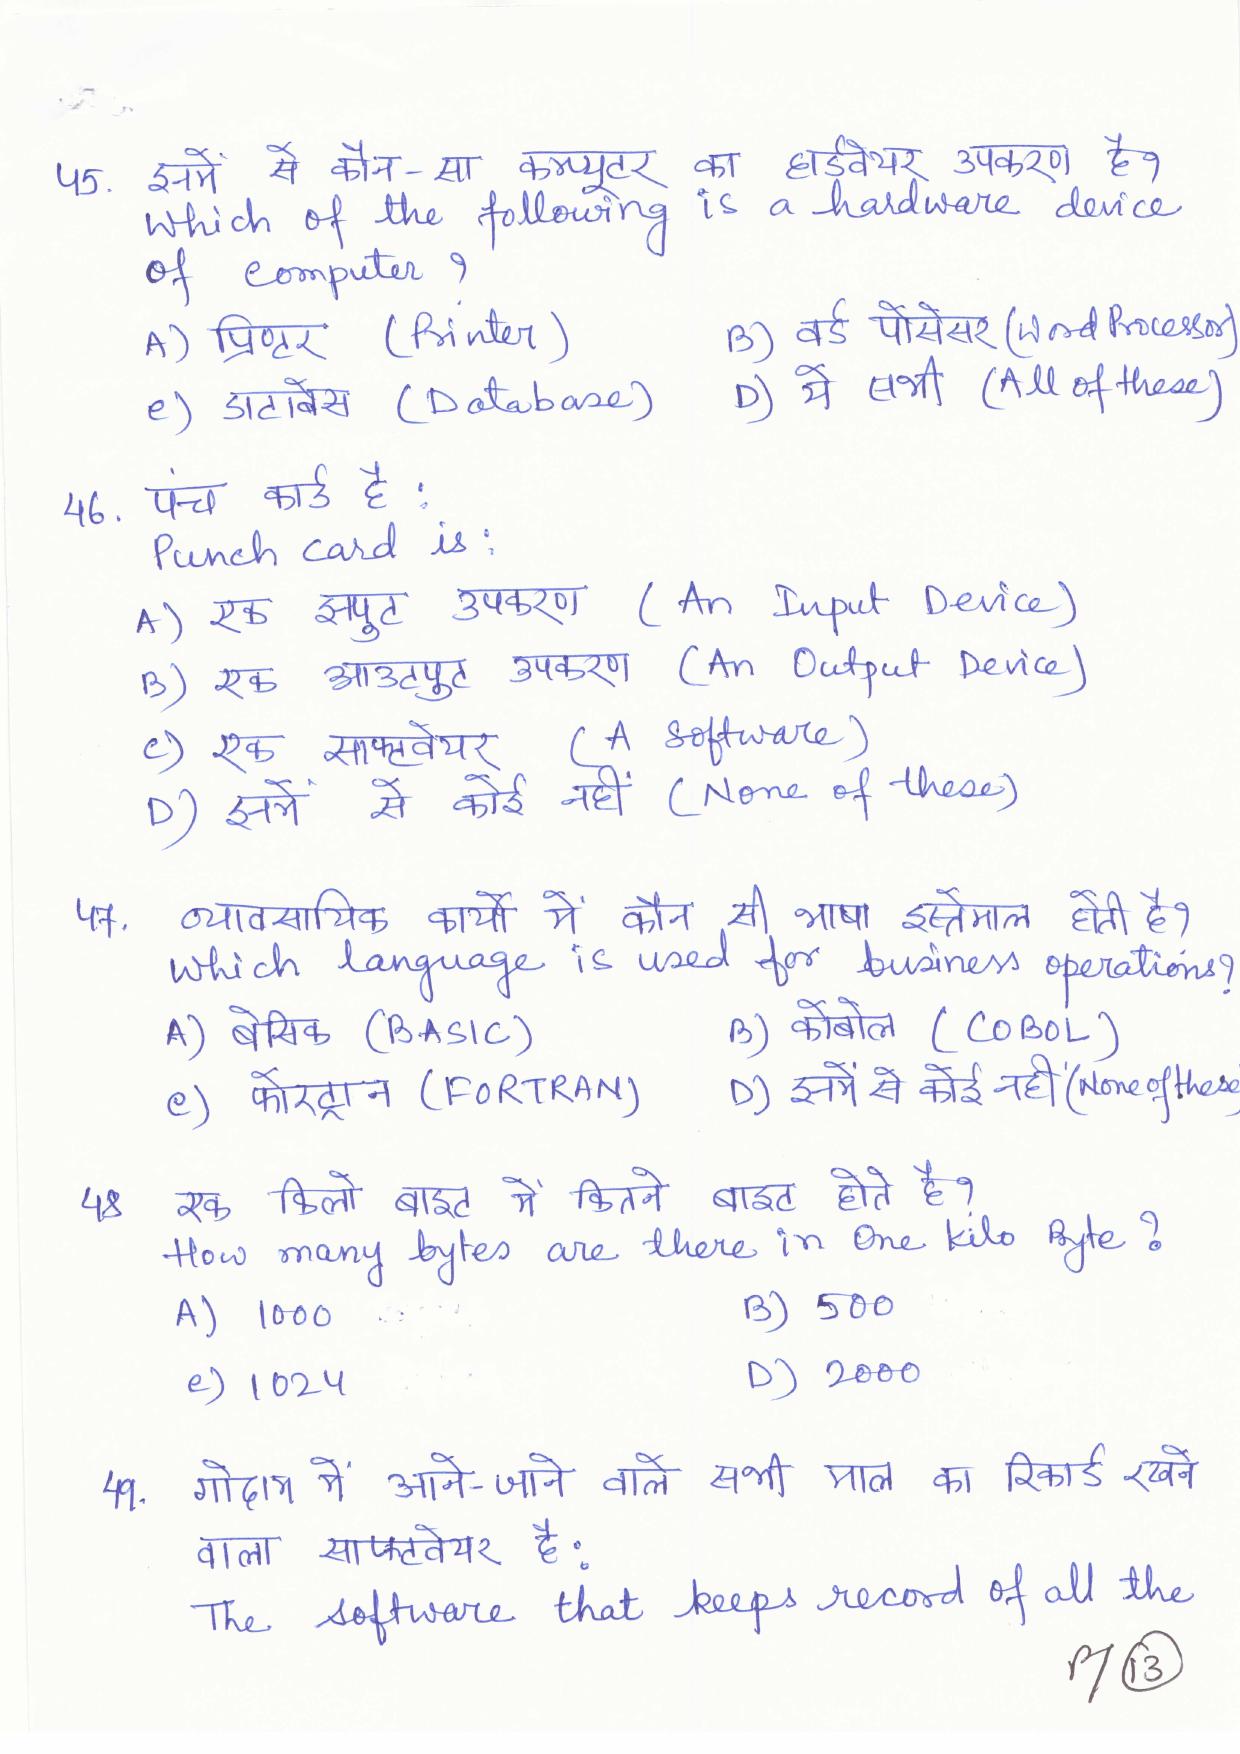 45. इनमें से कौन-सा कम्प्यूटर का हार्डवेयर उपकरण है?
Which of the following is a hardware device
of computer ?
A) प्रिण्टर (Printer)	B) वर्ड प्रोसेसर (Word Processor)
C) डाटाबेस (Database)	D) ये सभी (All of these)
46. पंन्च कार्ड है :
Punch card is :
A) एक इनपुट उपकरण (An Input Device)
B) एक आउटपुट उपकरण (An Output Device)
C) एक साफ्टवेयर (A Software)
D) इनमें से कोई नहीं (None of these)
47. व्यावसायिक कार्यो में कौन सी भाषा इस्तेमाल होती है?
Which language is used for business operations?
A) बेसिक (BASIC)	B) कोबोल (COBOL)
C) फोरट्रान (FORTRAN)	D) इनमें से कोई नहीं (None of these
48 एक किलो बाइट में कितने बाइट होते है?
How many bytes are there in One Kilo Byte ?
A) 1000	B) 500
C) 1024	D) 2000
49. गोदाम में आने-जाने वाले सभी माल का रिकार्ड रखने
वाला साफ्टवेयर है :
The software that keeps record of all the
P/13